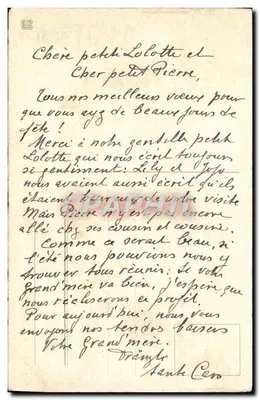 Chère petite Lolotte et
Cher petit Pierre,
Tous nos meilleurs vœux pour
que vous ayez de beaux jours de
fête !
Merci à notre gentille petit
Lolotte qui nous écrit toujours
si gentiment. Lily et Jojo
nous avaient aussi écrit qu'ils
étaient de votre visite
Mais Pierre n'est pas encore
allé chez ses cousin et cousines.
Comme ce serait beau, si
l'été nous pouvions nous y
trouver tous réunis. Si votre
Grand'mère va bien, j'espère que
nous réaliserons ce projet.
Pour aujourd'hui, nous vous
envoyons nos tendres baisers
Votre Grand'mère.
tante